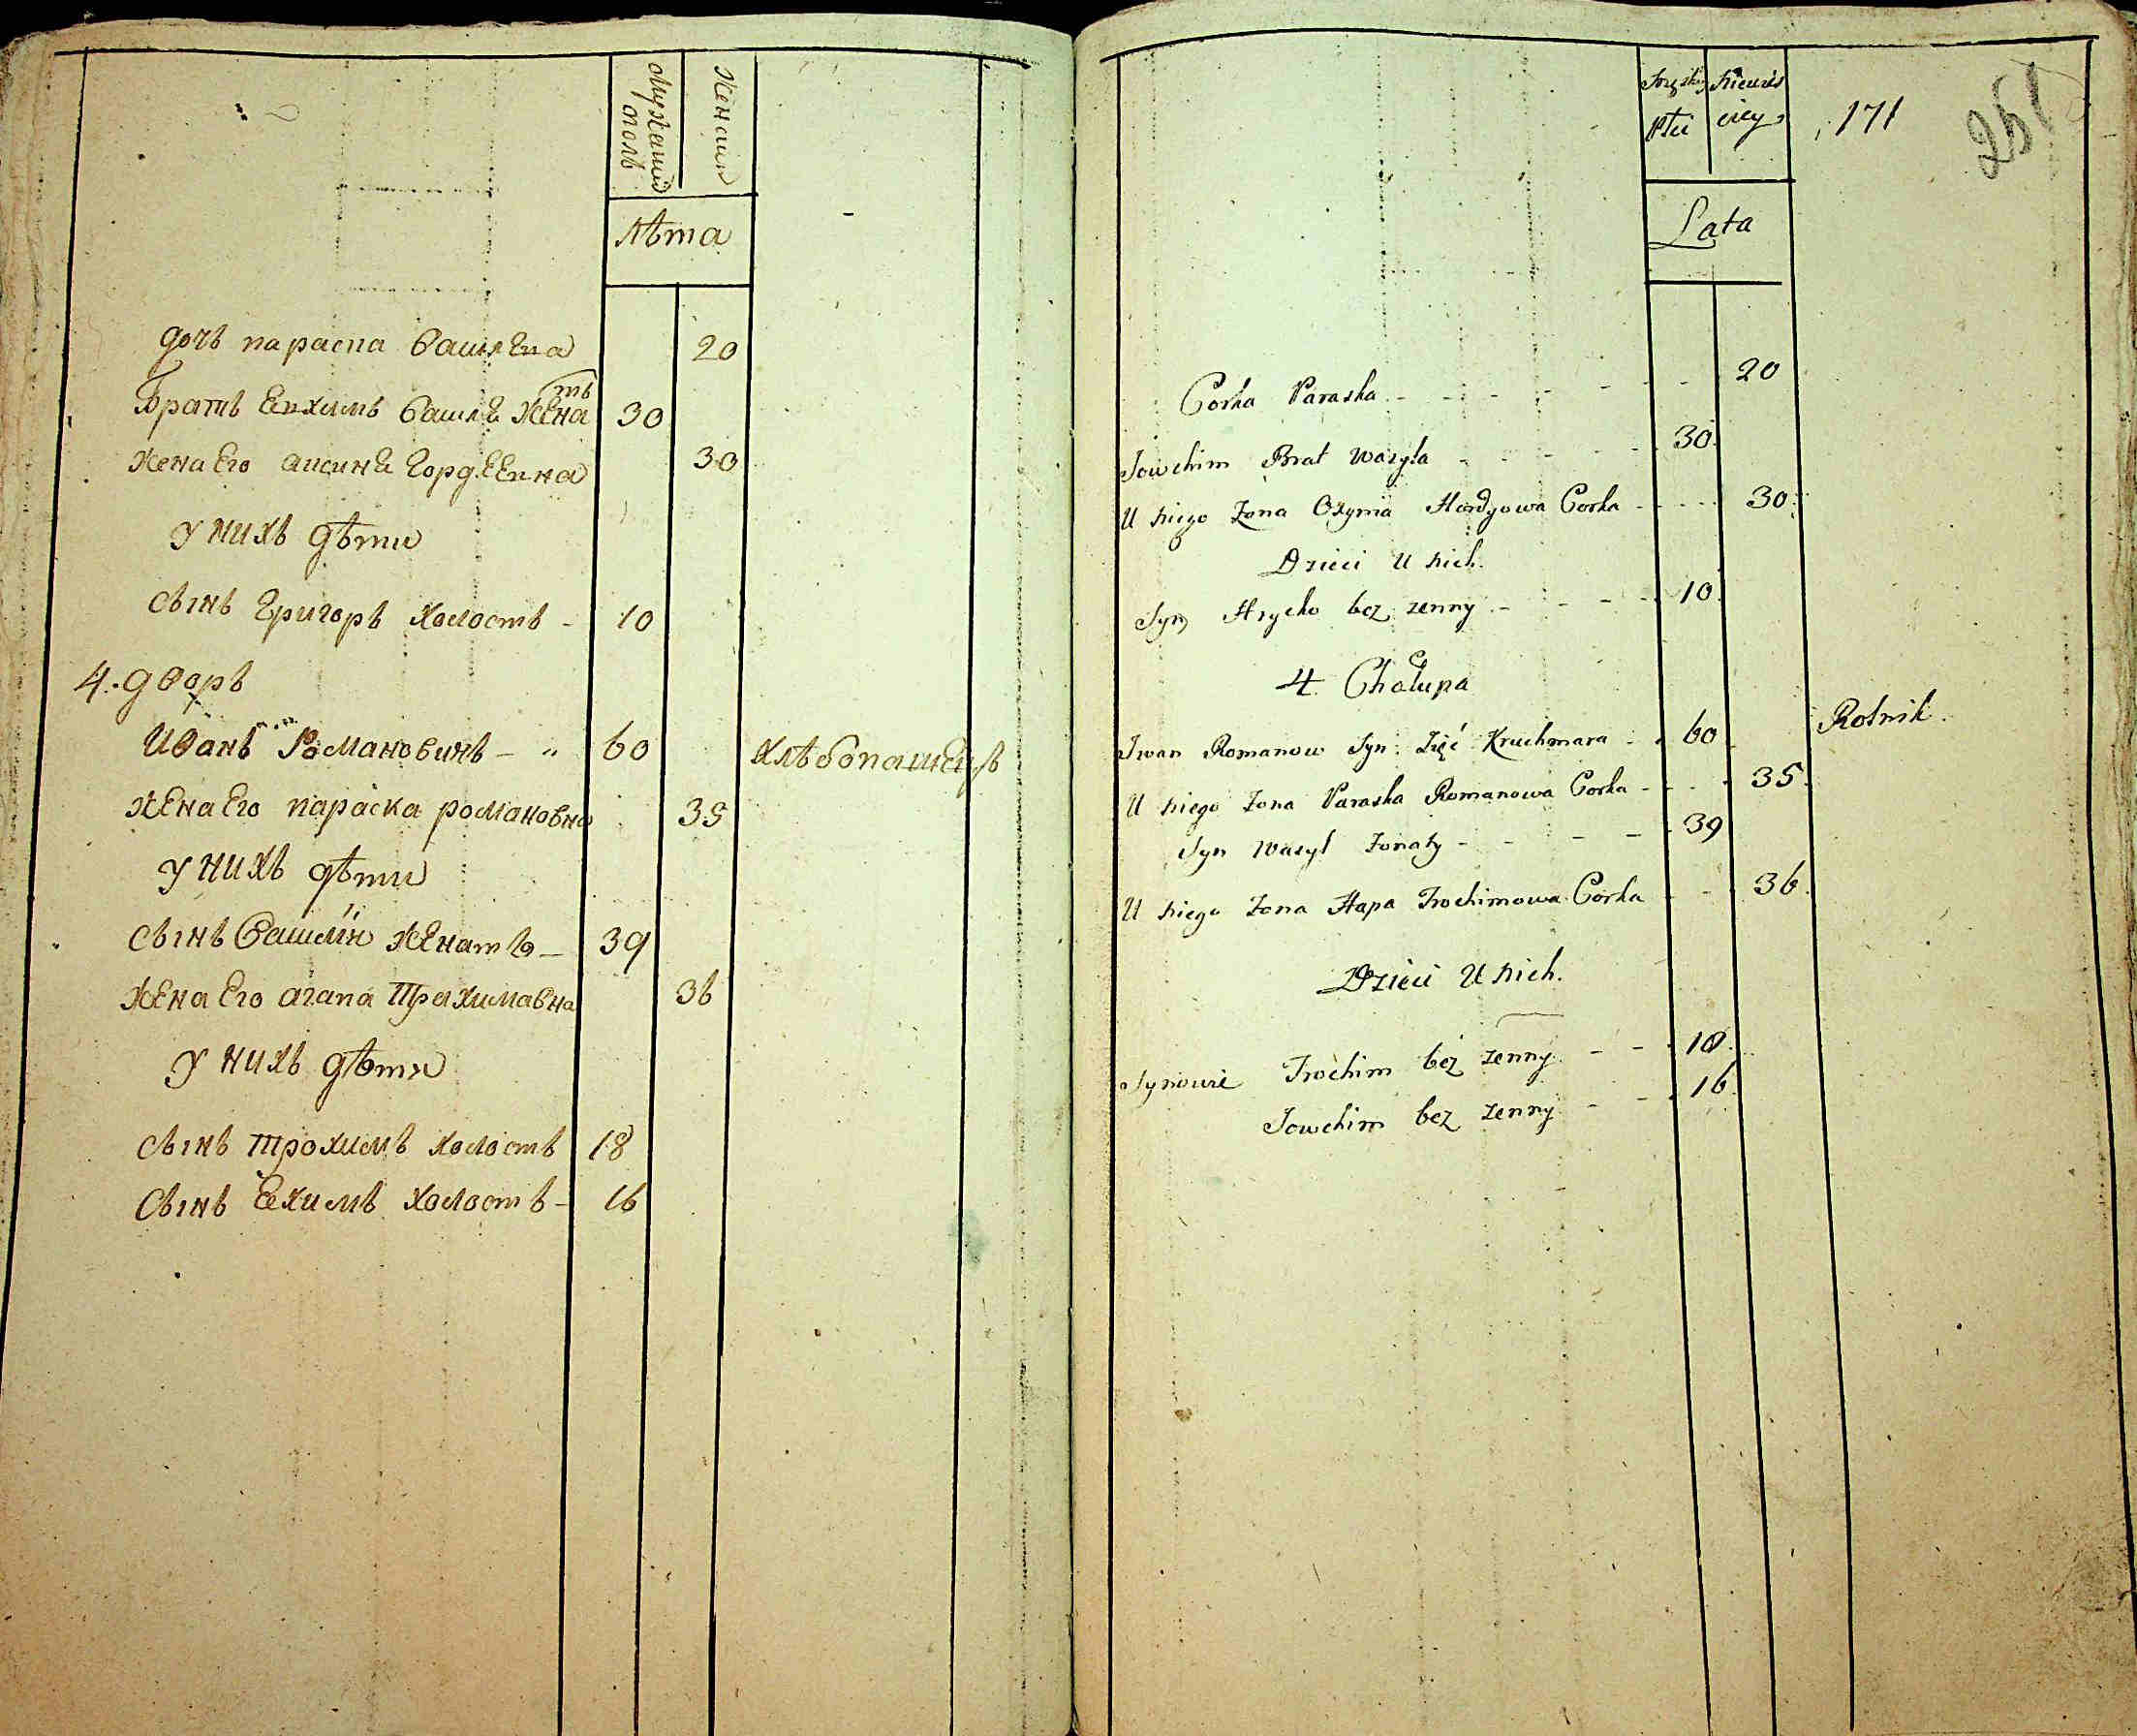 Мужеский полъ
Женский
Лѣта
дочь параска василева 20
Братъ Евхимъ василя женатъ 30
жена Его аксиня Гордеевна 30
у нихъ дѣти
сынъ Григоръ холостъ - 10
4. дворъ
Иванъ Романовичъ - „ 60 хлѣбопашецъ
жена Его параска романовна 35
у нихъ дѣти
сынъ Василiй женатъ - 39
жена Его агапа Трахимавна 36
у нихъ дѣти
сынъ трохимъ холостъ 18
сынъ Евхимъ холостъ - 16
Męskiey Płci
Żenskiey
171
251
Lata
Corka Paraska 20
Jowchim Brat Wasyla 30
U niego Zona Oxynia Hordyowa Corka 30
Dzieci U nich.
Syn Hrycko bez zenny 10
4. Chałupa
Iwan Romanow Syn Zięć Kruchmara 60 Rolnik
U niego Zona Paraska Romanowa Corka 35
Syn Wasyl Zonaty 39
U niego Zona Hapa Trochimowa Corka 36
Dzieci U nich.
Synowie Trochim bez zenny 18
Jowchim bez zenny 16